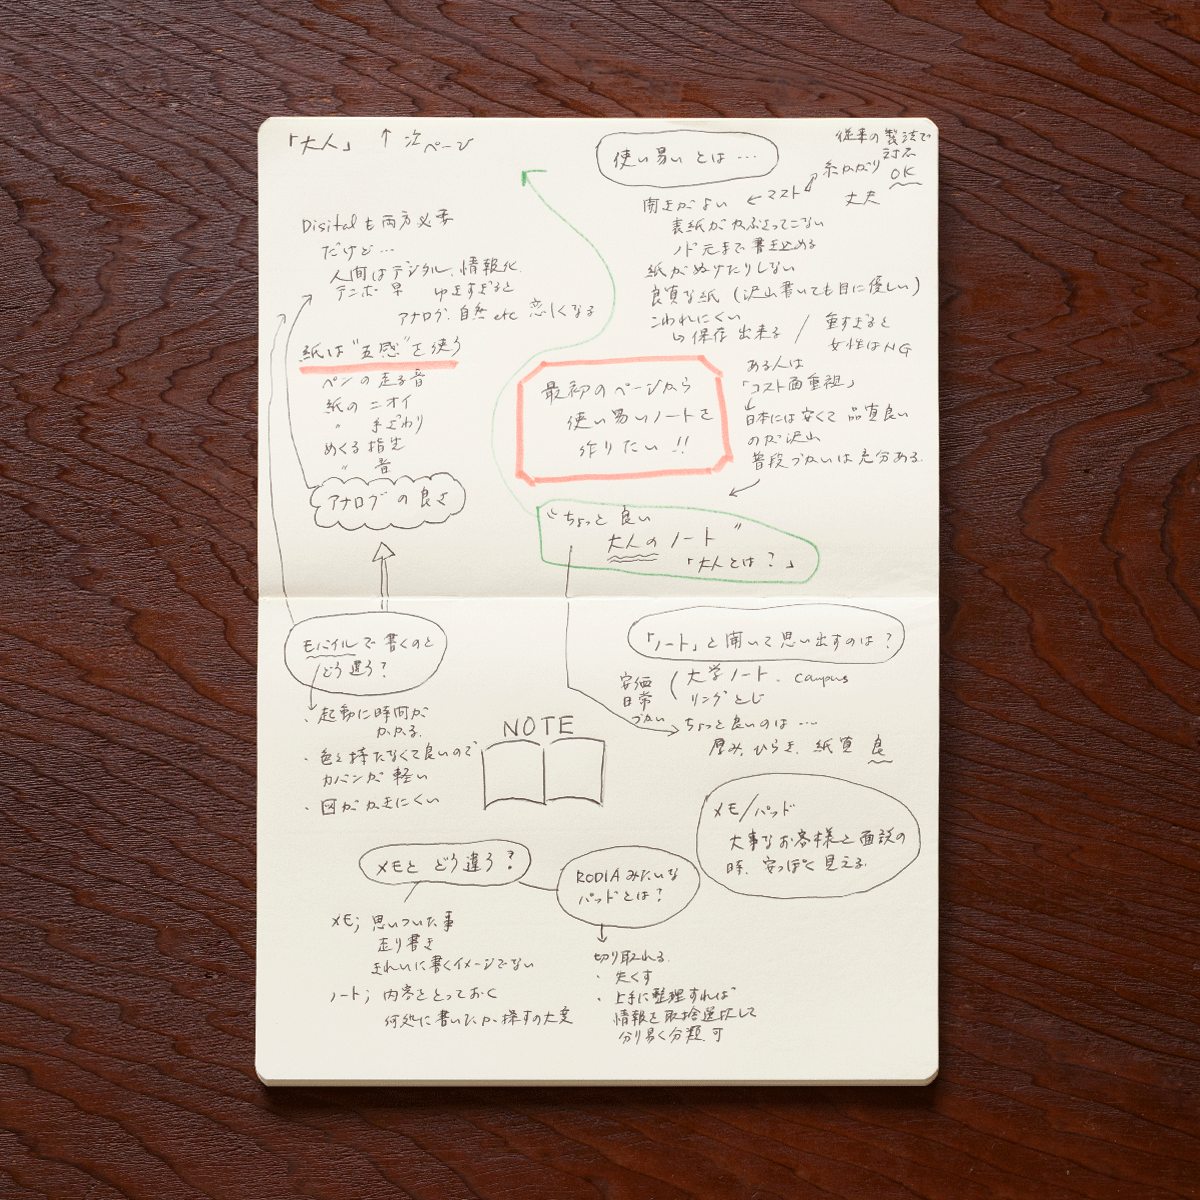 「大人」 ↑ 次ページ
Disitalも両方必要
だけど…
人間はデジタル、情報化
テンポ 早 ゆきすぎると
アナログ、自然 etc 恋しくなる
紙は"五感"を使う
ペンの走る音
紙の ニオイ
〃 手ざわり
めくる指先
〃 音
アナログの良さ
使い易いとは…
従来の製法で
対応
OK
糸かがり
丈夫
開きがよい ← マスト
表紙がかぶさってこない
ノド元まで書き込める
紙がぬけたりしない
良質な紙 (沢山書いても目に優しい)
こわれにくい
↳ 保存出来る / 重すぎると
女性はNG
ある人は
「コスト面重視」
日本には安くて品質良い
のが沢山
普段づかいは充分ある。
最初のページから
使い易いノートを
作りたい!!
"ちょっと良い
大人のノート"
「大人とは?」
モバイルで書くのと
どう違う?
・起動に時間が
かかる。
・色々持たなくて良いので
カバンが軽い
・図がかきにくい
NOTE
「ノート」と聞いて思い出すのは?
安価
日常
づかい
大学ノート、campus
リングとじ
ちょっと良いのは…
厚み、ひらき、紙質 良
メモ/パッド
大事なお客様と面談の
時、安っぽく見える。
メモと どう違う?
メモ; 思いついた事
走り書き
きれいに書くイメージでない
ノート; 内容をとっておく
何処に書いたか探すの大変
RODIAみたいな
パッドとは?
切り取れる。
・失くす
・上手に整理すれば
情報を取捨選択して
分り易く分類 可